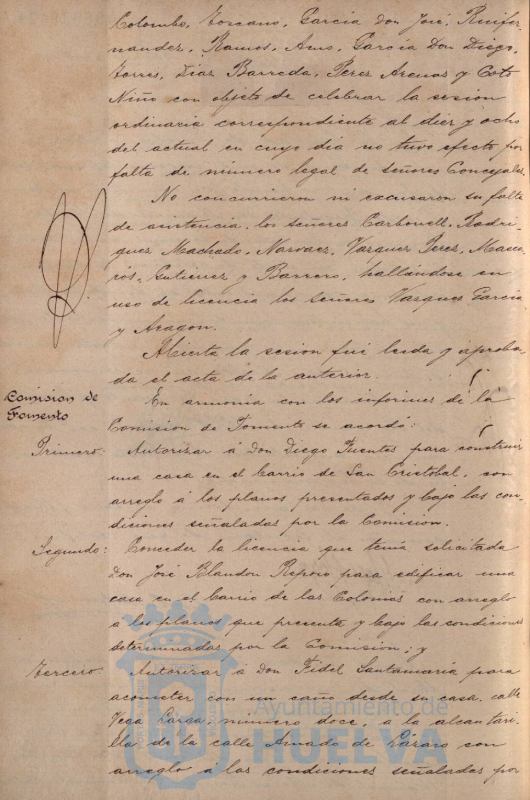 Colombo, Toscano, Garcia Don José, Ruifer-
nandez, Ramos, Amo, Garcia Don Diego,
Torres, Diaz Barreda, Perez Arenas y Coto
Niño con objeto de celebrar la sesion
ordinaria correspondiente al diez y ocho
del actual en cuyo dia no tuvo efecto por
falta de número legal de Señores Concejales.
No concurrieron ni excusaron su falta
de asistencia, los señores Carbonell, Rodri-
guez Machado, Narvaez, Vazquez Perez, Maca-
rós, Gutiérrez y Barrero, hallándose en
uso de licencia los señores Vazquez Garcia
y Aragon.
Abierta la sesion fué leida y aproba-
da el acta de la anterior.
Comision de
Fomento
En armonia con los informes de la
Comision de Fomento se acordó:
Primero: Autorizar á Don Diego Fuentes para construir
una casa en el barrio de San Cristobal, con
arreglo á los planos presentados y bajo las con-
diciones señaladas por la Comision.
Segundo: Conceder la licencia que tenia solicitada
Don José Blandon para edificar una
casa en el barrio de las Colonias con arreglo
a los planos que presenta y bajo las condiciones
determinadas por la Comision; y
Tercero: Autorizar á Don Fidel Santamaria para
acometer con un caño desde su casa, calle
Vega Larga número doce, a la alcantari-
lla de la calle Amado de Lázaro con
arreglo a las condiciones señaladas por
Ayuntamiento de
HUELVA